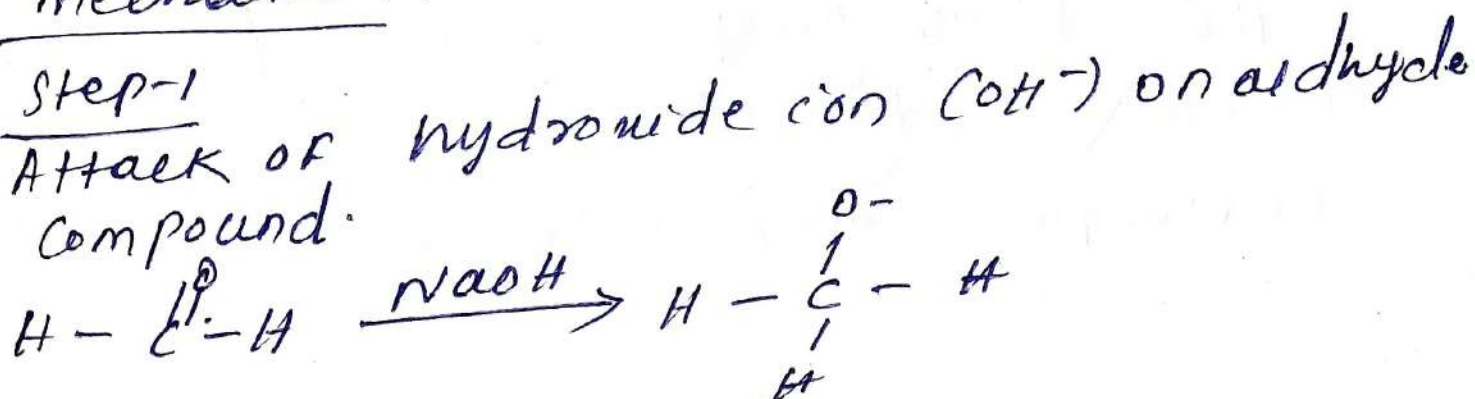 Step-1
Attack of hydroxide ion (OH-) on aldhyde
compound.
O O-
H - C - H NaOH H - C - H
H